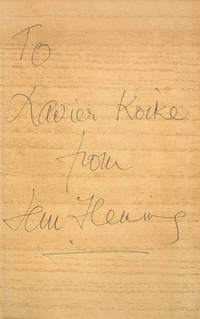 To
Xavier Koike
from
Ian Fleming